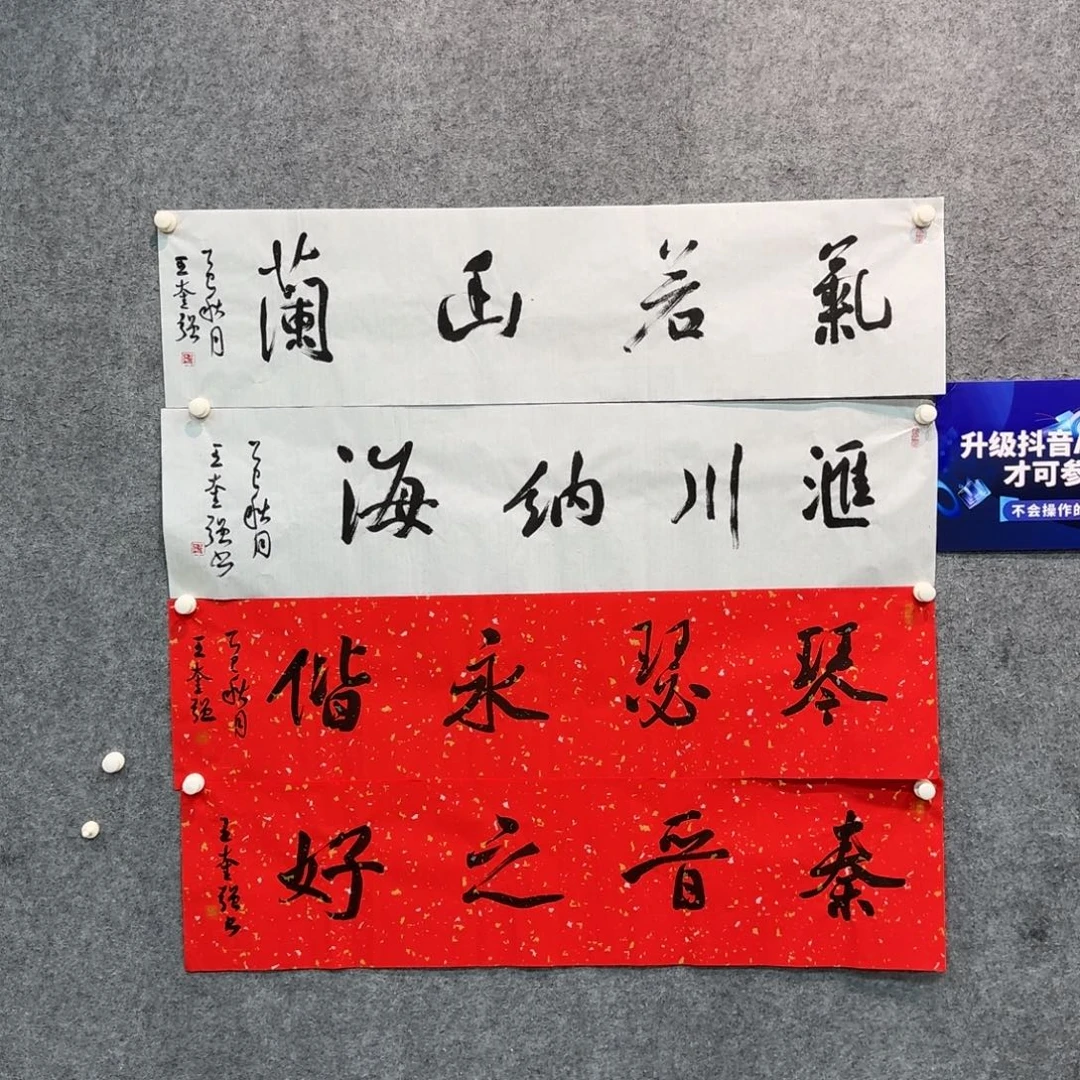 氣若幽蘭
乙巳秋月
王奎强
滙川纳海
乙巳秋月
王奎强书
琴瑟永偕
乙巳秋月
王奎强
秦晋之好
王奎强书
升级抖音
才可参
不会操作的